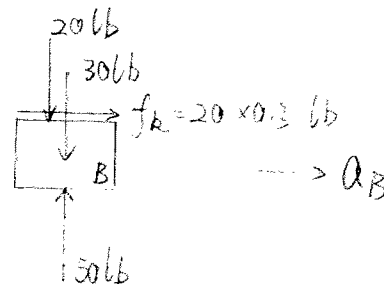 20lb
30lb
fk = 20 × 0.3 lb
B
---> aB
50lb